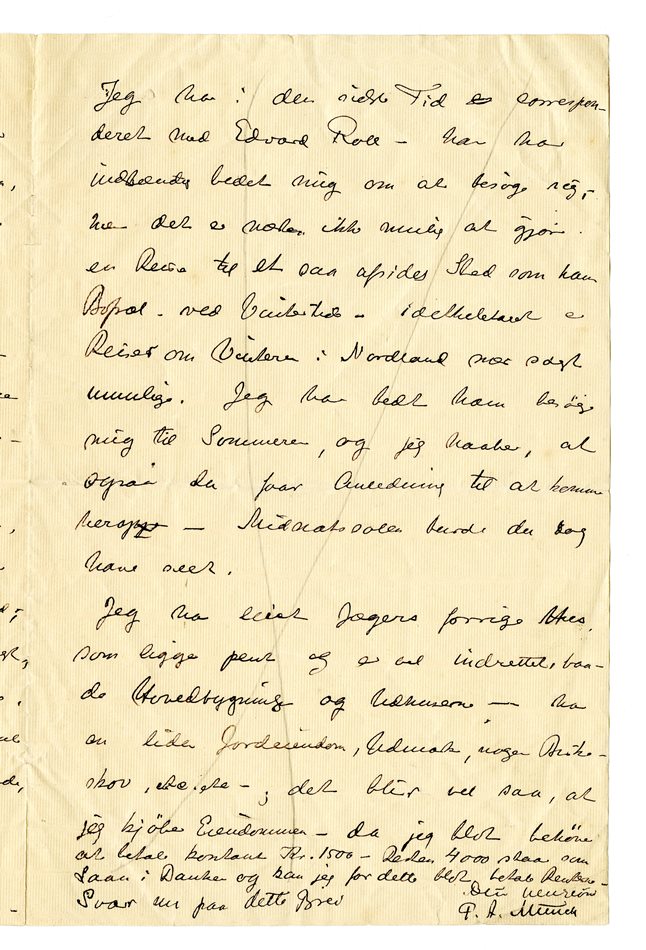 Jeg har i den sidste Tid correspon-
deret med Edvard Roll – han har
indstændig bedet mig om at besøge sig,
men det er næsten ikke mulig at gjøre
en Reise til et saa afsides Sted som han
Bopæl – ved Vintertid –
Reiser om Vinteren i Nordland nær sagt
umulige. Jeg har bedt ham besøge
mig til Sommeren, og jeg haaber, at
ogsaa du faar Anledning til at komme
herop – Midnatssolen burde du dog
have seet.
Jeg har leiet Jægers forrige Hus,
som ligger pent og er vel indrettet, baa-
de Hovedbygning og Udhusene — har
en liden Jordeiendom, Udmark, nogen Birke-
skov, – ; det blir vel saa, at
jeg kjøber Eiendommen – da jeg blot behøver
at betale kontant Kr. 1500 – Resten 4000 staar som
Laan i Banken og kan jeg for dette blot betale Renter –
Svar nu paa dette Brev
Din
P. A. Munch